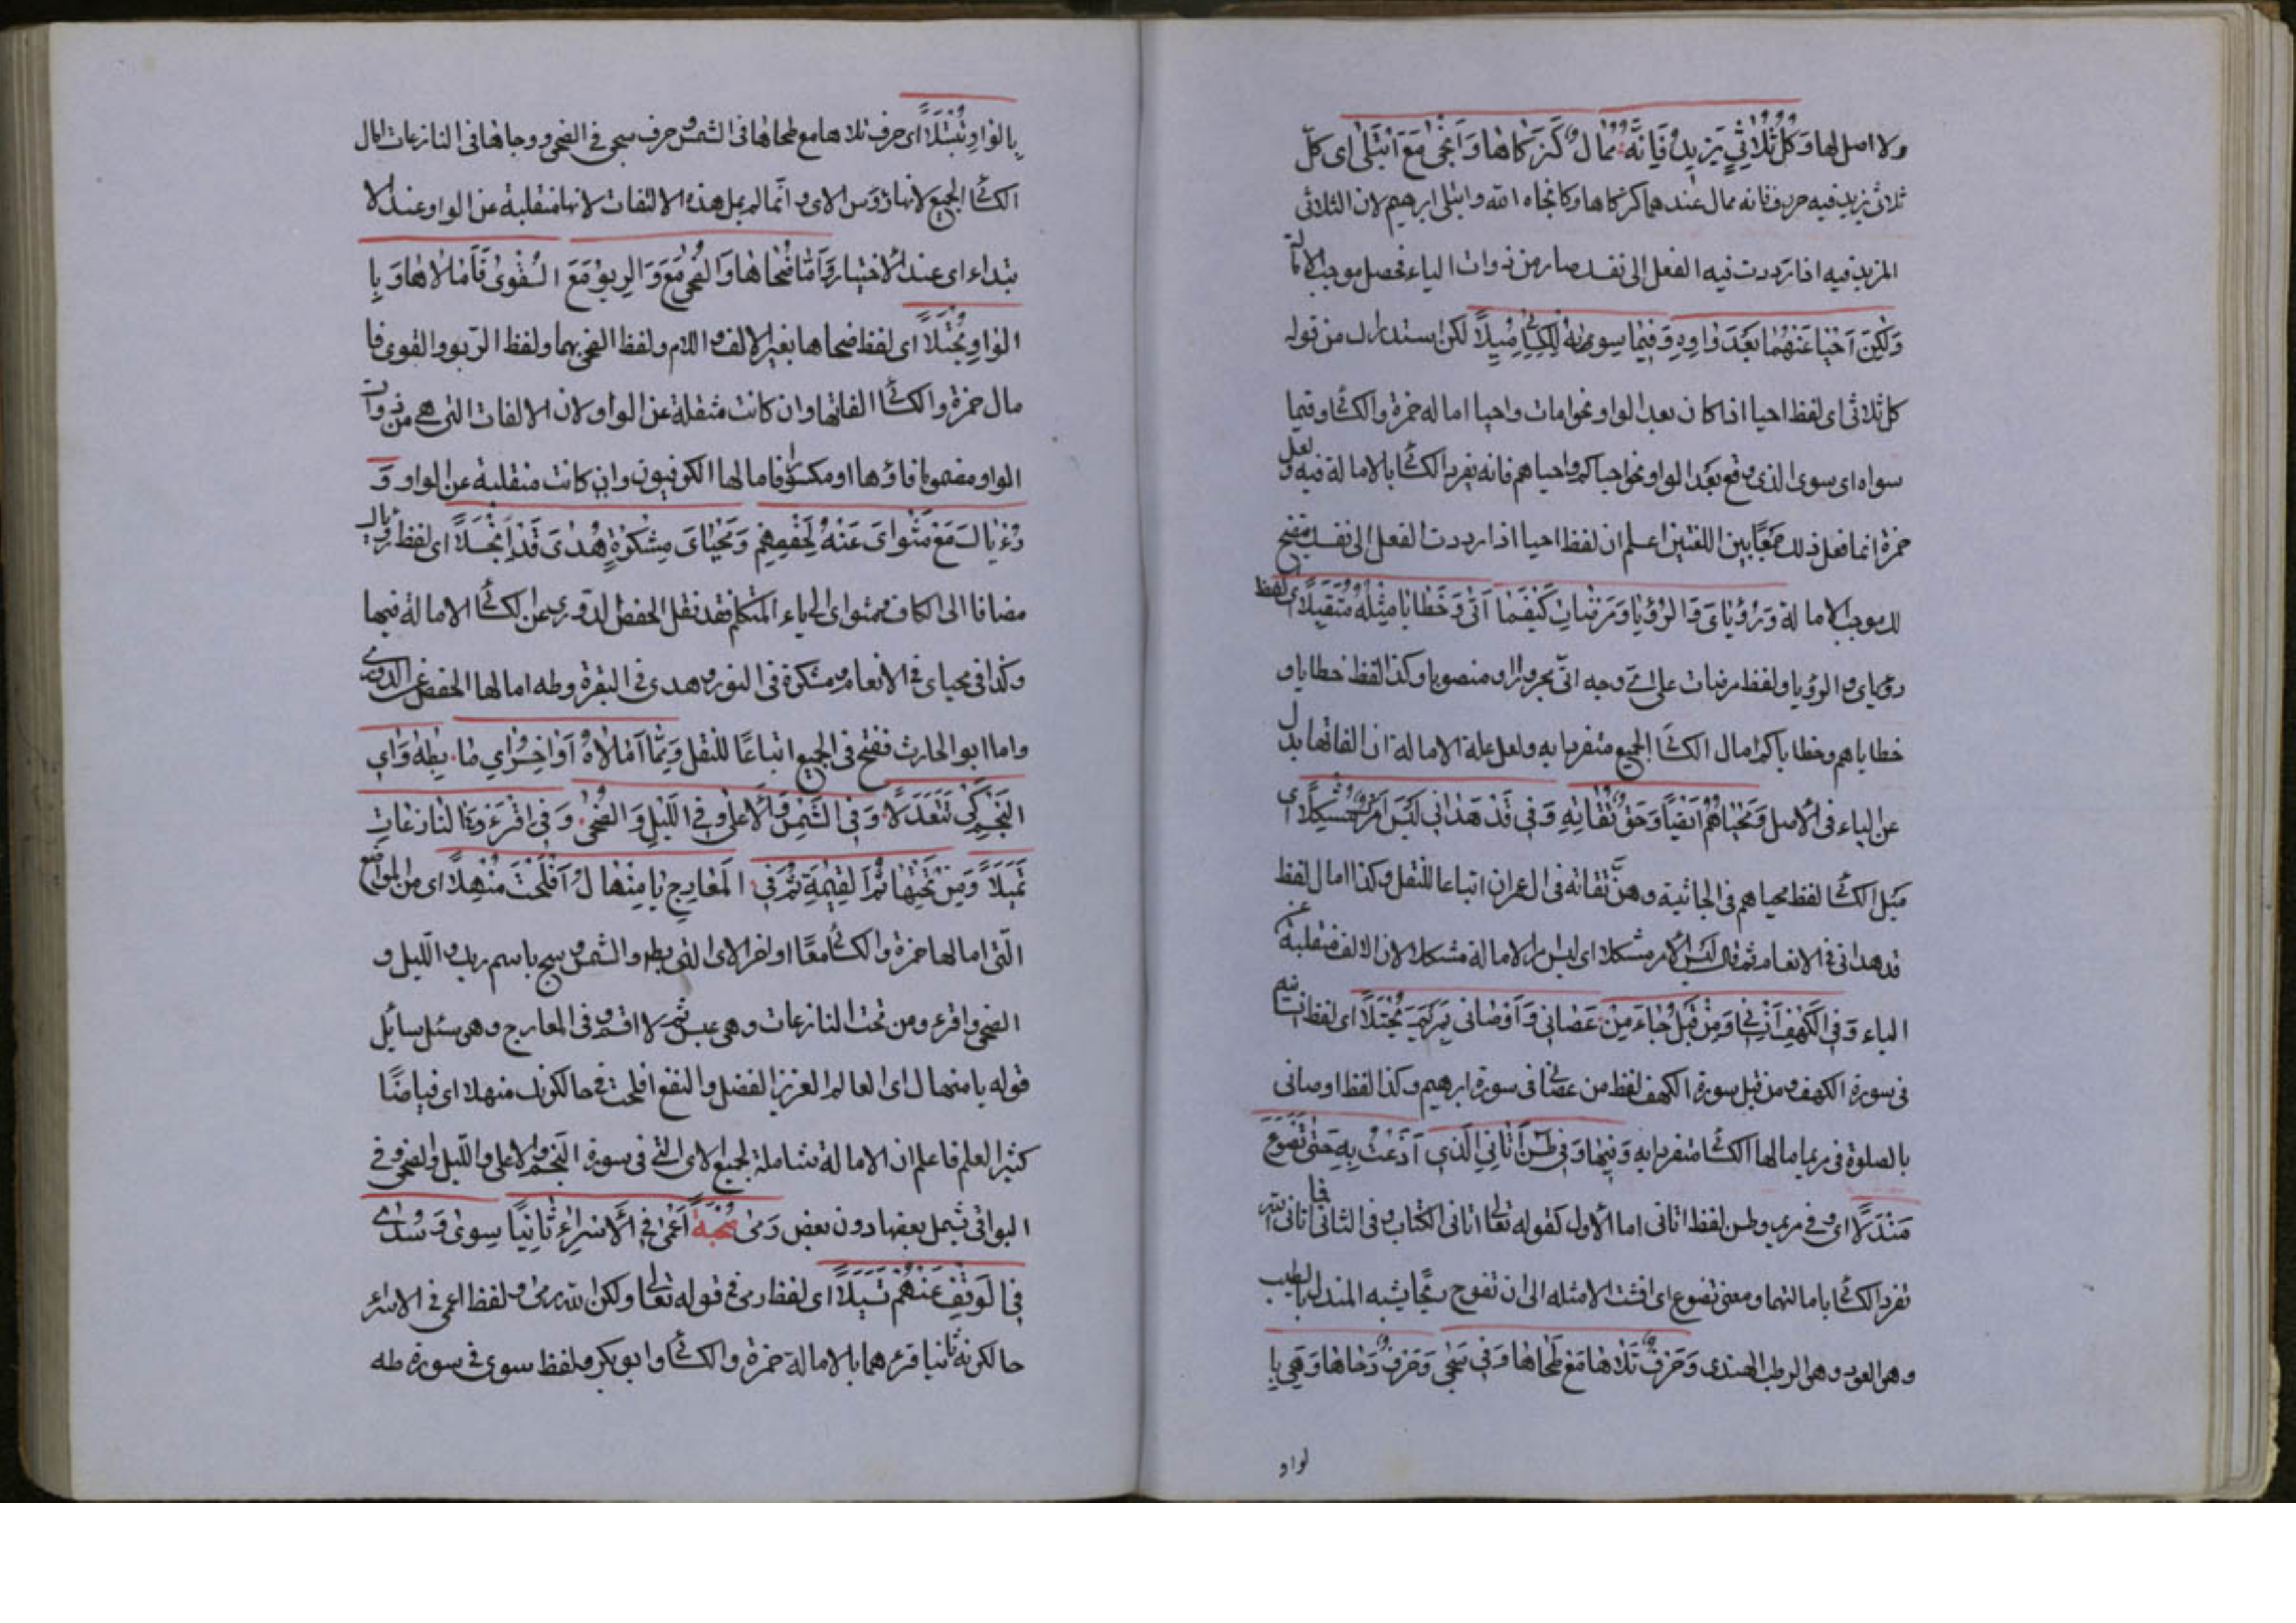 ولا اصل لها وَكُلُّ ثُلَاثِيٍّ يَزِيدُ فَاِنَّهُ مُمَالٌ كَزَكَّاهَا وَاَنْجٰى مَعَ ابْتَلٰى اى كلّ
ثلاثى يزيد فيه حرف فانه ممال عندهما كزكاها وكانجاه الله وابتلى ابرهيم لان الثلاثى
المزيد فيه اذا رددت فيه الفعل الى نفسك صار من ذوات الياء فحصل موجب الامالة
وَلٰكِنَّ اَحْيَا عَنْهُمَا بَعْدَ وَاوِهِ وَفِيمَا سِوَاهُ لِلْكِسَائِى مُيِّلَا لكن استدراك من قوله
كل ثلاثى اى لفظ احيا اذا كان بعد الواو نحو امات واحيا اماله حمزة والكسائى وفيما
سواه اى سوى الذى وقع بعد الواو نحو احياكم واحياهم فانه يفرد الكسائى بالامالة فيه ولعل
حمزة انما فعل ذلك جمعًا بين اللغتين اعلم ان لفظ احيا اذا رددت الفعل الى نفسك
لك موجب الامالة وَرُؤْيَاىَ وَالرُّؤْيَا وَمَرْضَاتِ كَيْفَمَا اَتٰى وَخَطَايَا مِثْلُهُ مُتَقَبَّلَا اى لفظ
رؤياى والرؤيا ولفظ مرضات على اىّ وجه اتى مجرورا ومنصوبا وكذا لفظ خطايا و
خطاياهم وخطاياكم امال الكسائى الجميع متفردا به ولعل علة الامالة ان الفاتها بدل
عن الياء فى الاصل وَمَحْيَاهُمْ اَيْضًا وَحَقَّ تُقَاتِهِ وَفِى قَدْ هَدَانِى لَيْسَ اَمْرُكَ مُشْكِلَا اى
مَيّل الكسائى لفظ محياهم فى الجاثية وحقّ تقاته فى ال عمران اتباعا للنقل وكذا امال لفظ
قد هدانى فى الانعام ثم قال ليس الامر مشكلا اى ليس امر الامالة مشكلا لان الالف منقلبة عن
الياء وَفِى الْكَهْفِ اَنْسَانِى وَمِنْ قَبْلُ جَاءَ مَنْ عَصَانِى وَاَوْصَانِى بِمَرْيَمَ يُجْتَلَا اى لفظ انسانيه
فى سورة الكهف ومن قبل سورة الكهف لفظ من عصانى فى سورة ابرهيم وكذا لفظ اوصانى
بالصلوة فى مريم امالها الكسائى متفردا به وَفِيهَا وَفِى طس اٰتَانِىَ الَّذِى اَذَعْتُ بِهِ حَتّٰى تَضَوَّعَ
مَنْدَلَا اى وفى مريم وطس لفظ اتانى اما الاول كقوله تعالى اتانى الكتاب وفى الثانى فما اتانى الله
تفرد الكسائى بامالتهما ومعنى تضوع اى افشت الامثله الى ان تفوح ريحًا يشبه المندل الطيب
وهو العود وهو الرطب الهندى وَحَرْفُ تَلَاهَا مَعْ طَحَاهَا وَفِى سَجٰى وَحَرْفُ دَحَاهَا وَهْىَ بِا
لواو
بِالْوَاوِ تُبْتَلَا اى حرف تلاها مع طحاها فى الشمس وحرف سجى فى الضحى ودحاها فى النازعات امال
الكسائى الجميع لانها رؤس الاى وانما لم يمل هذه الالفات لانها منقلبة عن الواو عند الا
بتداء اى عند الاختبار وَاَمَّا ضُحَاهَا وَالضُّحٰى مَعَ وَالرِّبٰوا مَعَ الْقُوٰى فَاَمَالَاهَا وَبِا
لْوَاوِ تُخْتَلَا اى لفظ ضحاها بغير الالف واللام ولفظ الضحى بهما ولفظ الربو والقوى فا
مال حمزة والكسائى الفاتها وان كانت منقلبة عن الواو لان الالفات التى هى من ذوات
الواو مضموما فاؤها او مكسورا فامالها الكوفيون وان كانت منقلبة عن الواو وَ
رُءْيَاكَ مَعْ مَثْوَاىَ عَنْهُ لِحَفْصِهِمْ وَمَحْيَاىَ مِشْكٰوةٍ هُدَاىَ قَدِ انْجَلَا اى لفظ رؤياك
مضافا الى الكاف ومثواى الى ياء المتكلم فقد نقل الحفص الدورى عن الكسائى الامالة فيها
وكذا فى محياى فى الانعام ومشكوة فى النور وهدى فى البقرة وطه امالها الحفص عن الدورى
واما ابو الحارث ففتح فى الجميع اتباعًا للنقل وَمِمَّا اَمَالَاهُ اَوَاخِرُ اٰىِ مَا بِطٰهَ وَاٰىِ
النَّجْمِ كَىْ تَتَعَدَّلَا وَفِى الشَّمْسِ وَالْاَعْلٰى وَفِى اللَّيْلِ وَالضُّحٰى وَفِى اقْرَءْ وَفِى النَّازِعَاتِ
تَمَيَّلَا وَمِنْ تَحْتِهَا ثُمَّ الْقِيٰمَةِ ثُمَّ فِى الْمَعَارِجِ يَا مِنْهَالُ اَفْلَحْتَ مُنْهِلَا اى من المواضع
الّتى امالها حمزة والكسائى معًا اواخر الاى التى بطه والشمس وسبح باسم ربك والليل و
الضحى واقرء ومن تحت النازعات وهى عبس ثم لا اقسم وفى المعارج وهى سئل سايل
قوله يا منهال اى العالم العزيز الفضل والنفع افلحت فى حالكونك منهلا اى فياضًا
كثير العلم فاعلم ان الامالة شاملة لجميع الاى التى فى سورة النجم والاعلى والليل والضحى وفى
البواقى تشمل بعضها دون بعض رَمٰى صُحْبَةٌ اَعْمٰى فِى الْاِسْرَاءِ ثَانِيًا سِوًى وَسُدًى
فِى الْوَقْفِ عَنْهُمْ تَسَبَّلَا اى لفظ رمى فى قوله تعالى ولكن الله رمى ولفظ اعمى فى الاسراء
حالكونه ثانيا قرءهما بالامالة حمزة والكسائى وابو بكر ولفظ سوى فى سورة طه